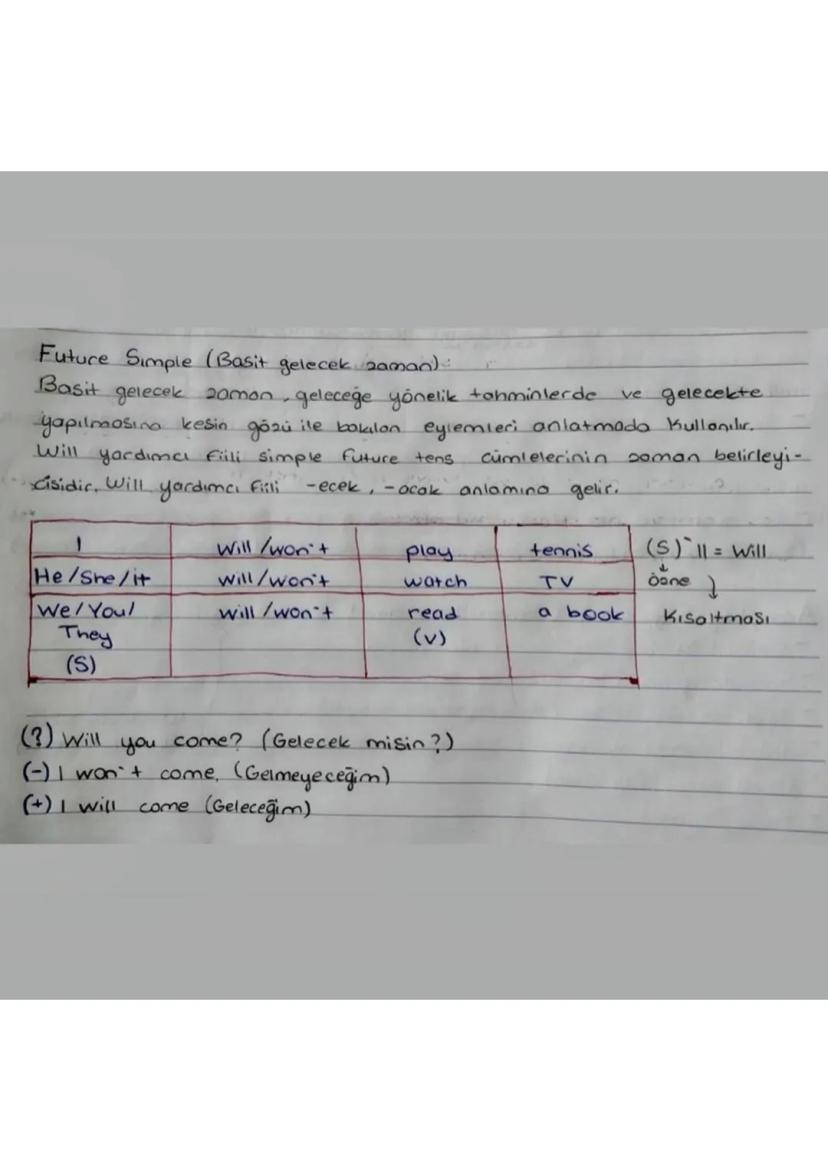 Future Simple (Basit gelecek zaman):
Basit gelecek zaman, geleceğe yönelik tahminlerde ve gelecekte
yapılmasına kesin gözü ile bakılan eylemleri anlatmada kullanılır.
Will yardımcı fiili simple future tens cümlelerinin zaman belirleyi-
cisidir. Will yardımcı fiili -ecek, -acak anlamına gelir.
I will/won't play tennis (S)'ll = will
He/She/it will/won't watch TV özne
We/You/ will/won't read a book Kısaltması
They (V)
(S)
(?) Will you come? (Gelecek misin?)
(-) I won't come. (Gelmeyeceğim)
(+) I will come (Geleceğim)